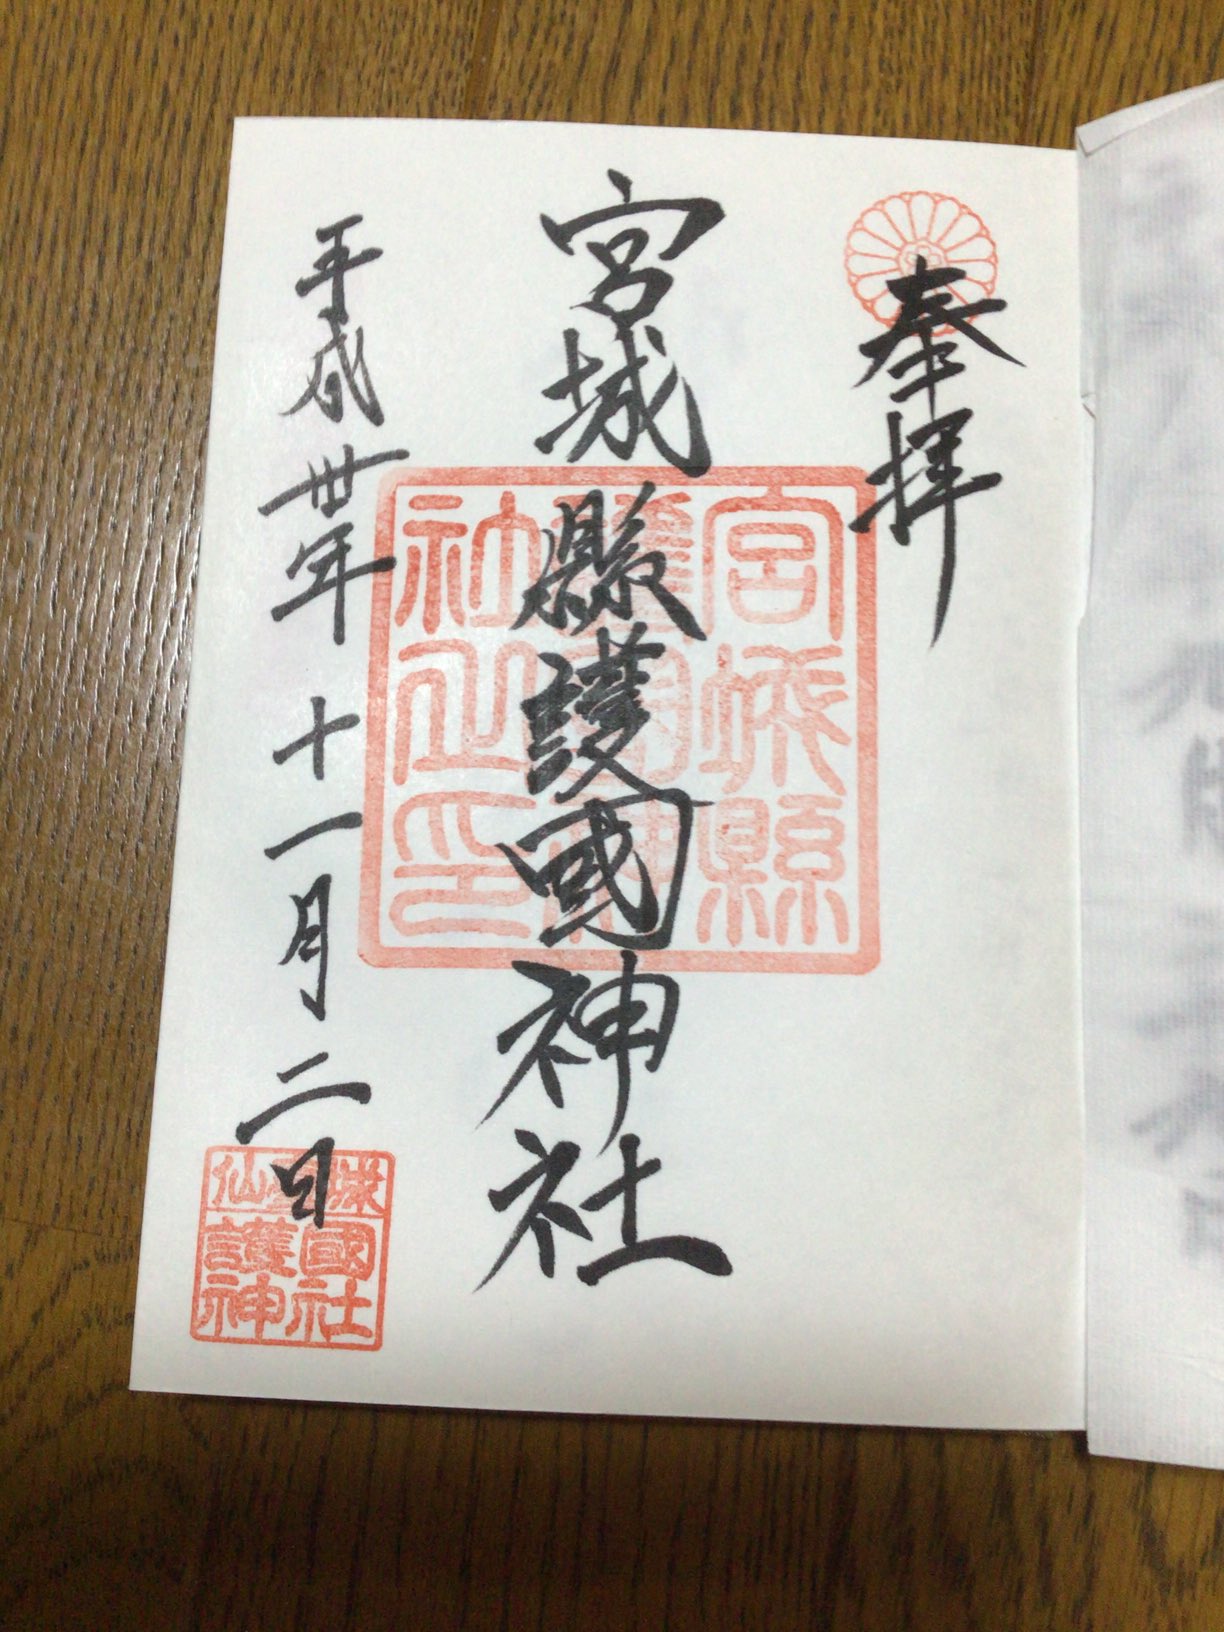 奉拝
宮城縣護國神社
平成卅年 十一月二日
宮城縣
護國神
社之印
仙臺城
護國
神社